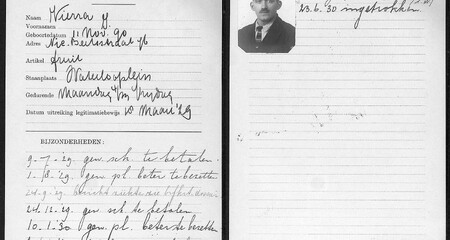 Naam Vierra J.
Voornamen
Geboortedatum 11 Nov. 90
Adres Nic. Beetsstraat 76
Artikel fruit
Staanplaats Waterlooplein
Gedurende Maandag t/m Vrijdag
Datum uitreiking legitimatiebewijs 18 Maart '29
BIJZONDERHEDEN:
9-7-29. gew. sch. te betalen.
1-8-'29. gew. pl. beter te bezetten
24-9-29.
24.12.29. gew. sch. te betalen
10.1.30 gew. pl. beter te bezetten
23.6.'30 ingetrokken.